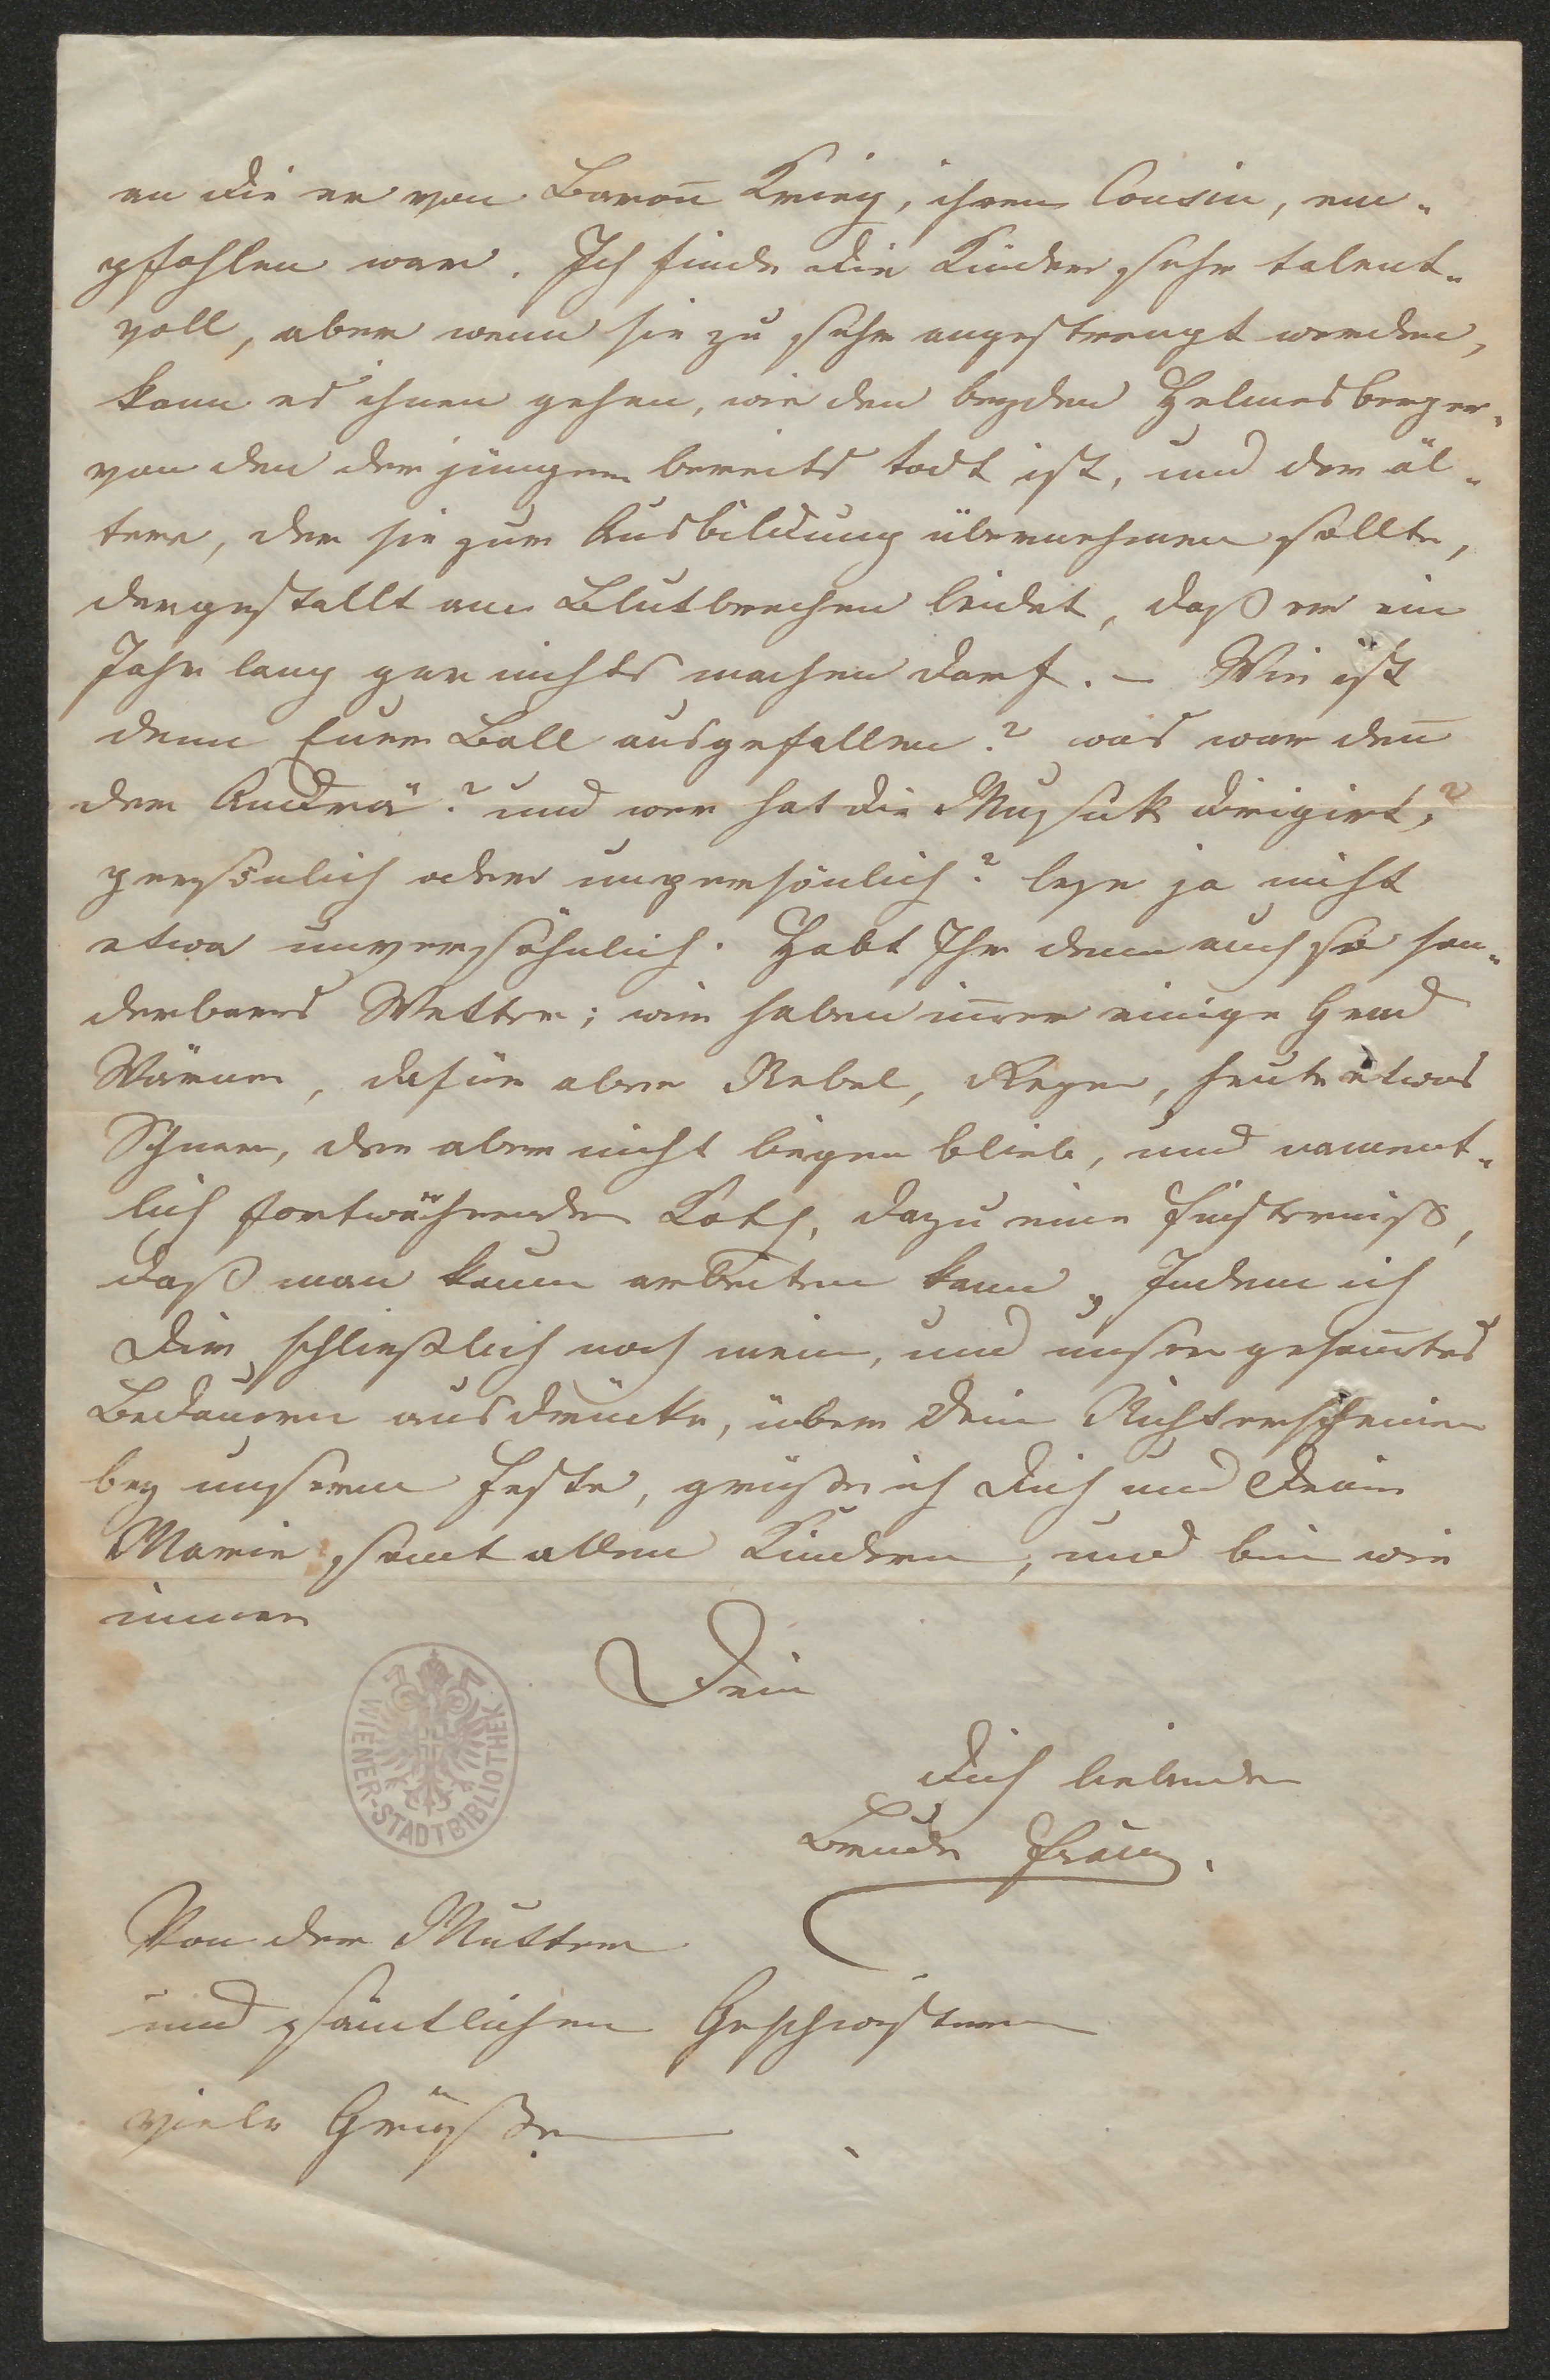 an die er von Baron̄ Krieg, ihrem Cousin, em-
pfohlen war. Ich finde die Kinder sehr talent-
voll, aber wenn sie zu sehr angestrengt werden,
kann es ihnen gehen, wie den beyden Helmesberger,
von den der jüngere bereits todt ist, und der äl-
tere, der sie zur Ausbildung übernehmen sollte,
dergestallt am Blutbrechen leidet, daß er ein
Jahr lang gar nichts machen darf. – Wie ist
denn Euer Ball ausgefallen? was war den̄
der Andrä? und wer hat die Musick dirigirt,?
persönlich oder unpersönlich? lese ja nicht
etwa unversöhnlich. Habt Ihr denn auch so son-
derbares Wetter; wir haben im̄er einige Grad
Wärme, dafür aber Nebel, Regen, heute etwas
Schnee, der aber nicht liegen blieb, und nament-
lich fortwährender Koth, dazu eine Finsterniß,
daß man kaum arbeiten kann. Indem ich
Dir schließlich noch mein, und unser gesam̄tes
Bedauern ausdrücke, über Dein Nichterscheinen
bey unserem Feste, grüße ich Dich und Deine
Marie samt allen Kindern, und bin wie
immer
Dein
Dich liebender
Bruder Franz.
Von der Mutter
und sämtlichen Geschwistern
viele Grüße.
WIENER-STADTBIBLIOTHEK